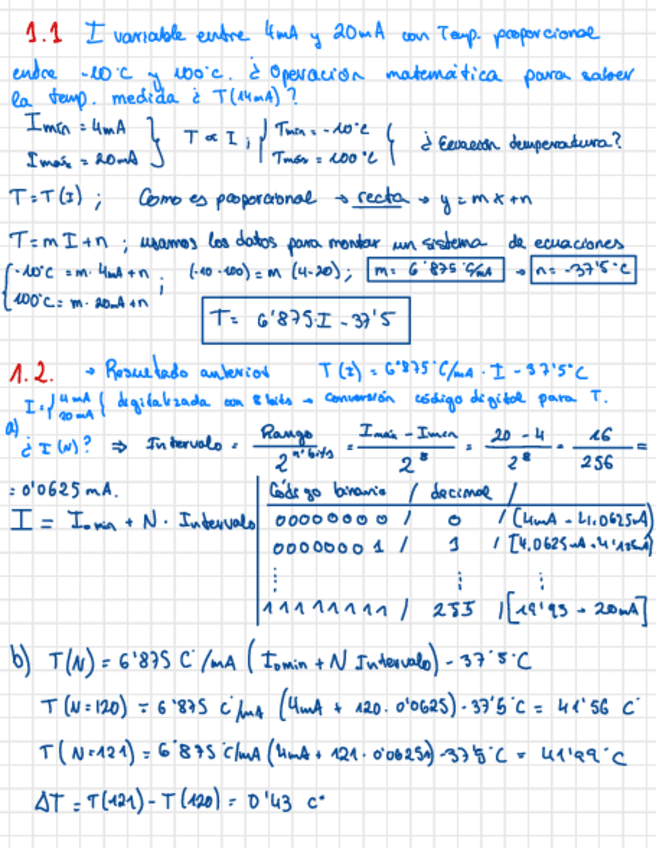 1.1 I variable entre 4mA y 20mA con Temp. proporcional
entre -10°C y 100°C. ¿Operación matemática para saber
la temp. medida ¿ T(14mA)?
Imín = 4mA } T ∝ I ; { Tmín = -10°C { ¿Ecuación temperatura?
Imáx = 20mA Tmáx = 100°C
T = T(I) ; Como es proporcional → recta → y = mx+n
T = m I + n ; usamos los datos para montar un sistema de ecuaciones
{ -10°C = m · 4mA + n ; (-10 -100) = m (4-20) ; m = 6'875 °C/mA → n = -37'5°C
100°C = m · 20mA + n
T = 6'875·I - 37'5
1.2. → Resultado anterior T(I) = 6'875°C/mA · I - 37'5°C
I = { 4mA 20mA { digitalizada con 8 bits → conversión código digital para T.
a) ¿I(N)? ⇒ Intervalo = Rango / 2^nº bits = Imáx - Imín / 2^8 = 20 - 4 / 2^8 = 16 / 256 =
= 0'0625 mA.
Código binario / decimal /
I = Iomin + N · Intervalo
00000000 / 0 / [4mA - 4.0625mA)
00000001 / 1 / [4.0625mA - 4'125mA)
⋮ ⋮ ⋮
11111111 / 255 / [19'93 - 20mA]
b) T(N) = 6'875 C°/mA (Iomin + N Intervalo) - 37'5°C
T(N=120) = 6'875 C°/mA (4mA + 120 · 0'0625) - 37'5°C = 41'56 C°
T(N=121) = 6'875 C/mA (4mA + 121 · 0'0625) - 37'5°C = 41'99°C
ΔT = T(121) - T(120) = 0'43 C°